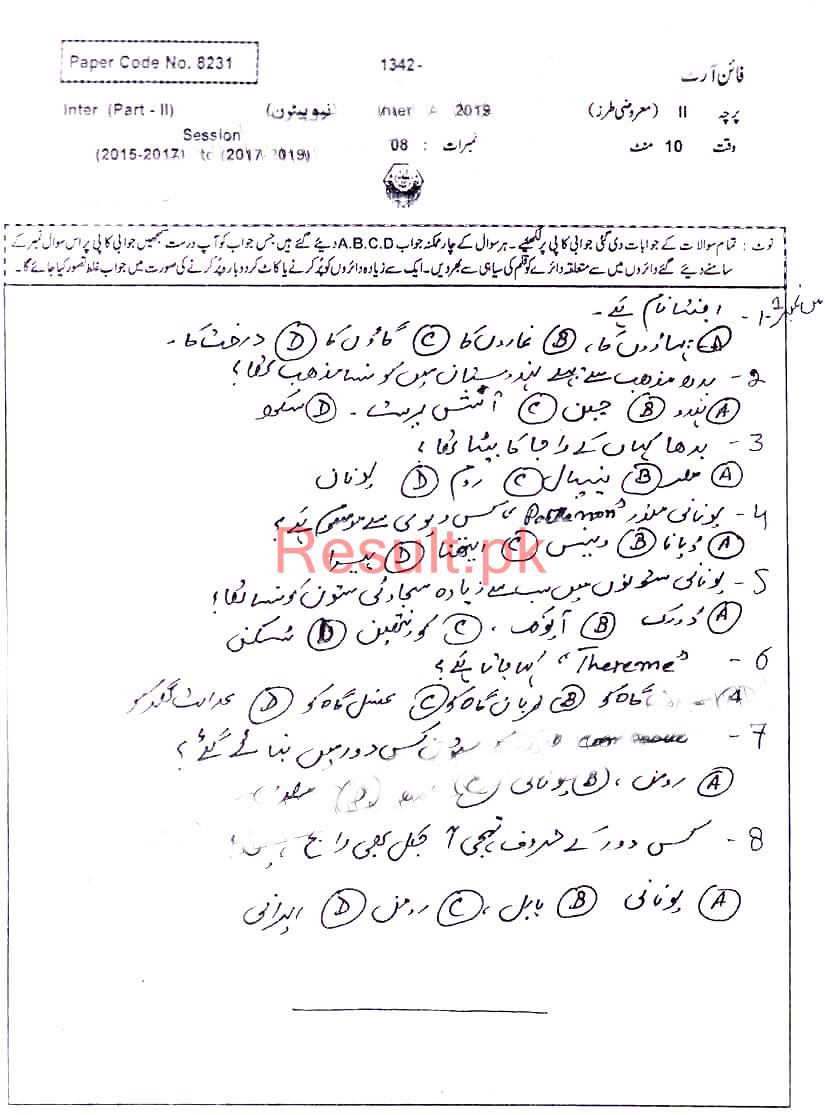 Paper Code No. 8231 1342- فائن آرٹ
Inter (Part - II) (نیو پیٹرن) Inter A 2019 پرچہ II (معروضی طرز)
Session (2015-2017) to (2017-2019) نمبرات : 08 وقت 10 منٹ
نوٹ : تمام سوالات کے جوابات دی گئی جوابی کاپی پر لکھیے۔ ہر سوال کے چار ممکنہ جواب A.B.C.D دیئے گئے ہیں جس جواب کو آپ درست سمجھیں جوابی کاپی پر اس سوال نمبر کے
سامنے دیئے گئے دائروں میں سے متعلقہ دائرے کو قلم کی سیاہی سے بھر دیں۔ ایک سے زیادہ دائروں کو پُر کرنے یا کاٹ کر دوبارہ پُر کرنے کی صورت میں جواب غلط تصور کیا جائے گا۔
س نمبر 1 1- اجنتا نام ہے۔
A پہاڑوں کا، B غاروں کا C گاؤں کا D درخت کا۔
2- بدھ مذہب سے پہلے ہندوستان میں کونسا مذہب تھا؟
A ہندو B جین C آتش پرست۔ D سکھ
3- بدھا کہاں کے راجا کا بیٹا تھا؟
A مصر B نیپال C روم D یونان
4- یونانی مندر کس دیوی سے موسوم ہے؟
A ڈیانا B وینس C ایتھنا D ہیرا
Result.pk
5- یونانی ستونوں میں سب سے زیادہ سجاوٹی ستون کونسا تھا؟
A ڈورک B آیونک، C کورنتھین D ٹسکن
6- "Thereme" کہا جاتا ہے؟
گاہ کو B قربان گاہ کو C غسل گاہ کو D عدالت گھر کو
7- ستون کس دور میں بنائے گئے؟
A رومن، B یونانی
8- کس دور کے حروف تہجی آجکل بھی رائج ہیں؟
A یونانی B بابل، C رومن D ایرانی